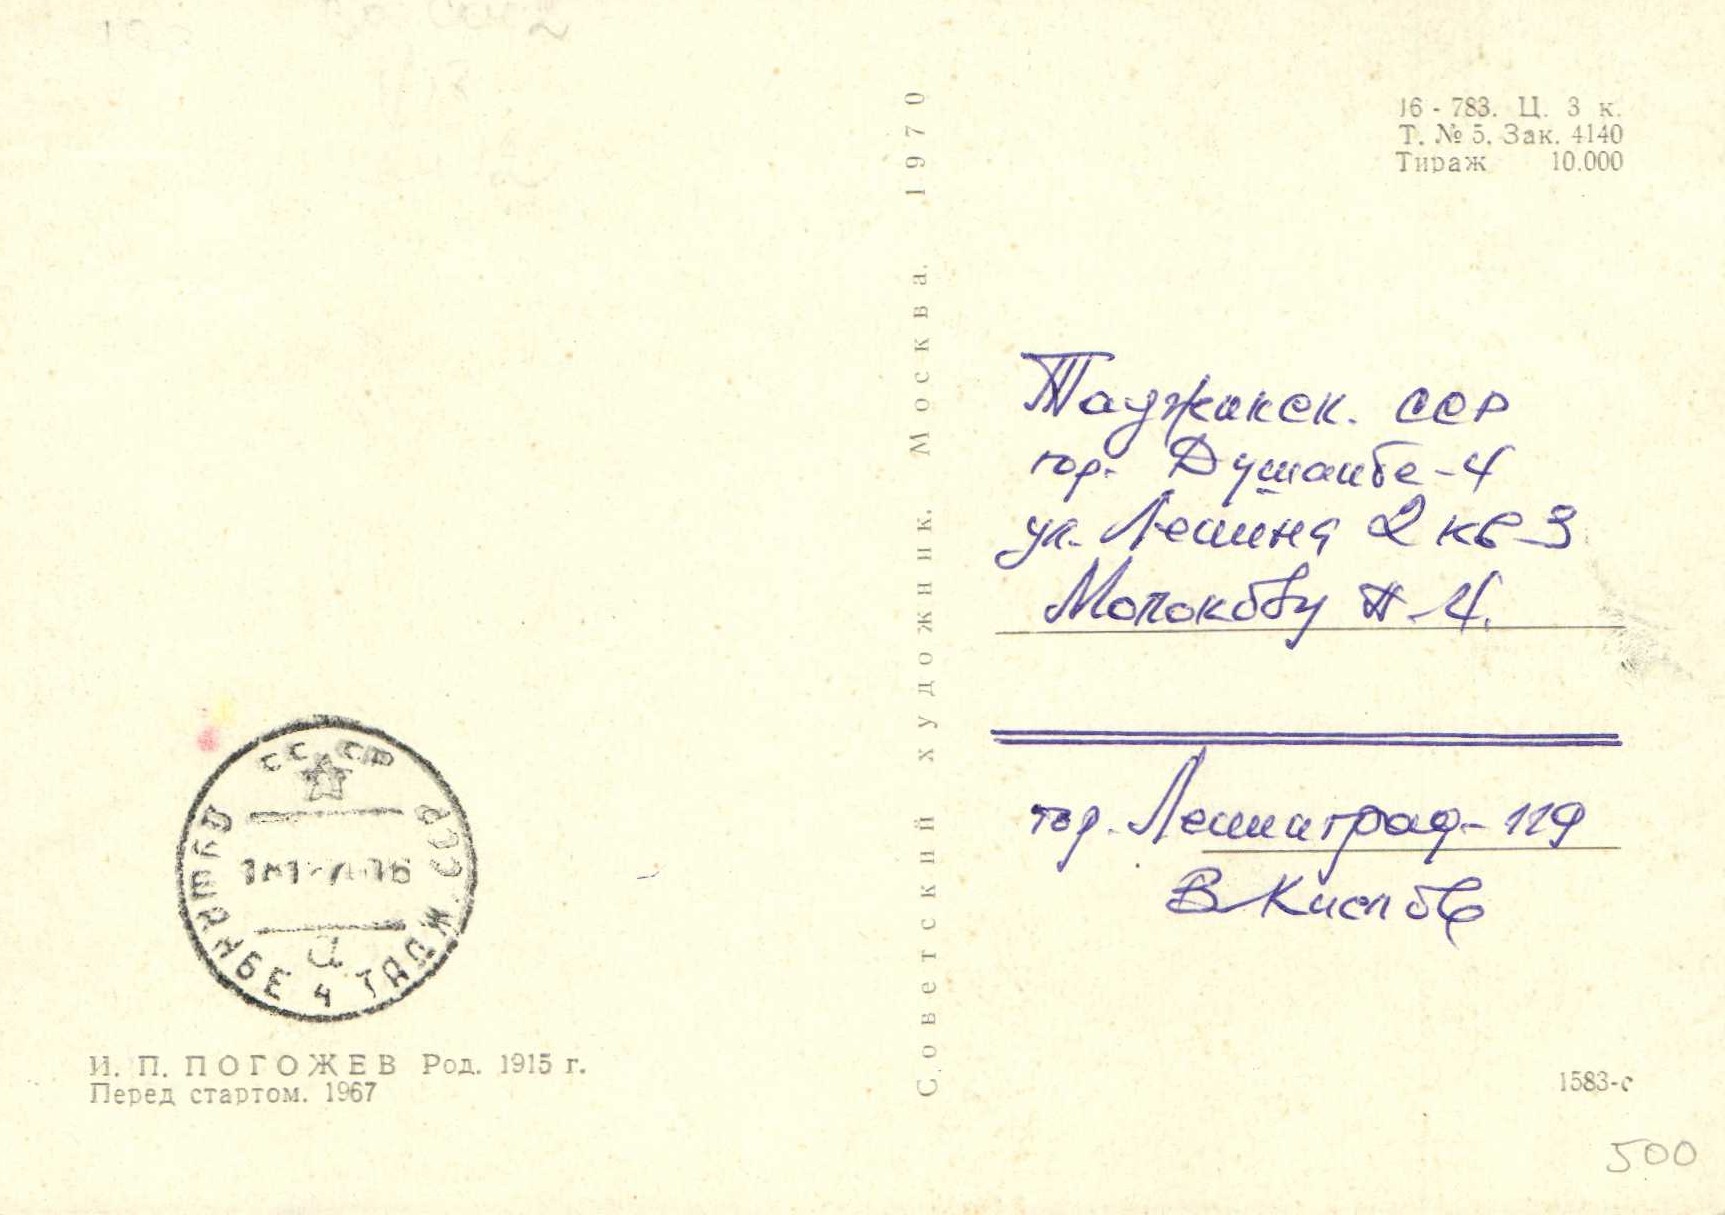 16-783. Ц. 3 к.
Т. № 5. Зак. 4140
Тираж 10.000
Советский художник. Москва. 1970
Таджикск. ССР
гор. Душанбе-4
ул. Ленина 2 кв 3
гор. Ленинград-119
В
СССР
ДУШАНБЕ 4 ТАДЖ. ССР
а
И. П. ПОГОЖЕВ Род. 1915 г.
Перед стартом. 1967
1583-с
500